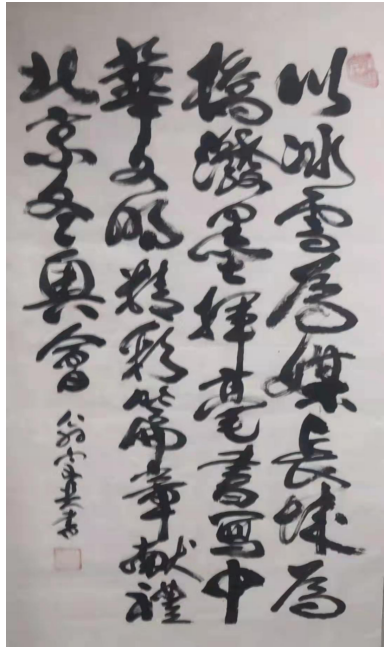 以冰雪為媒長城為
橋潑墨揮毫書畫中
華文明精彩篇章獻禮
北京冬奥會
翁書